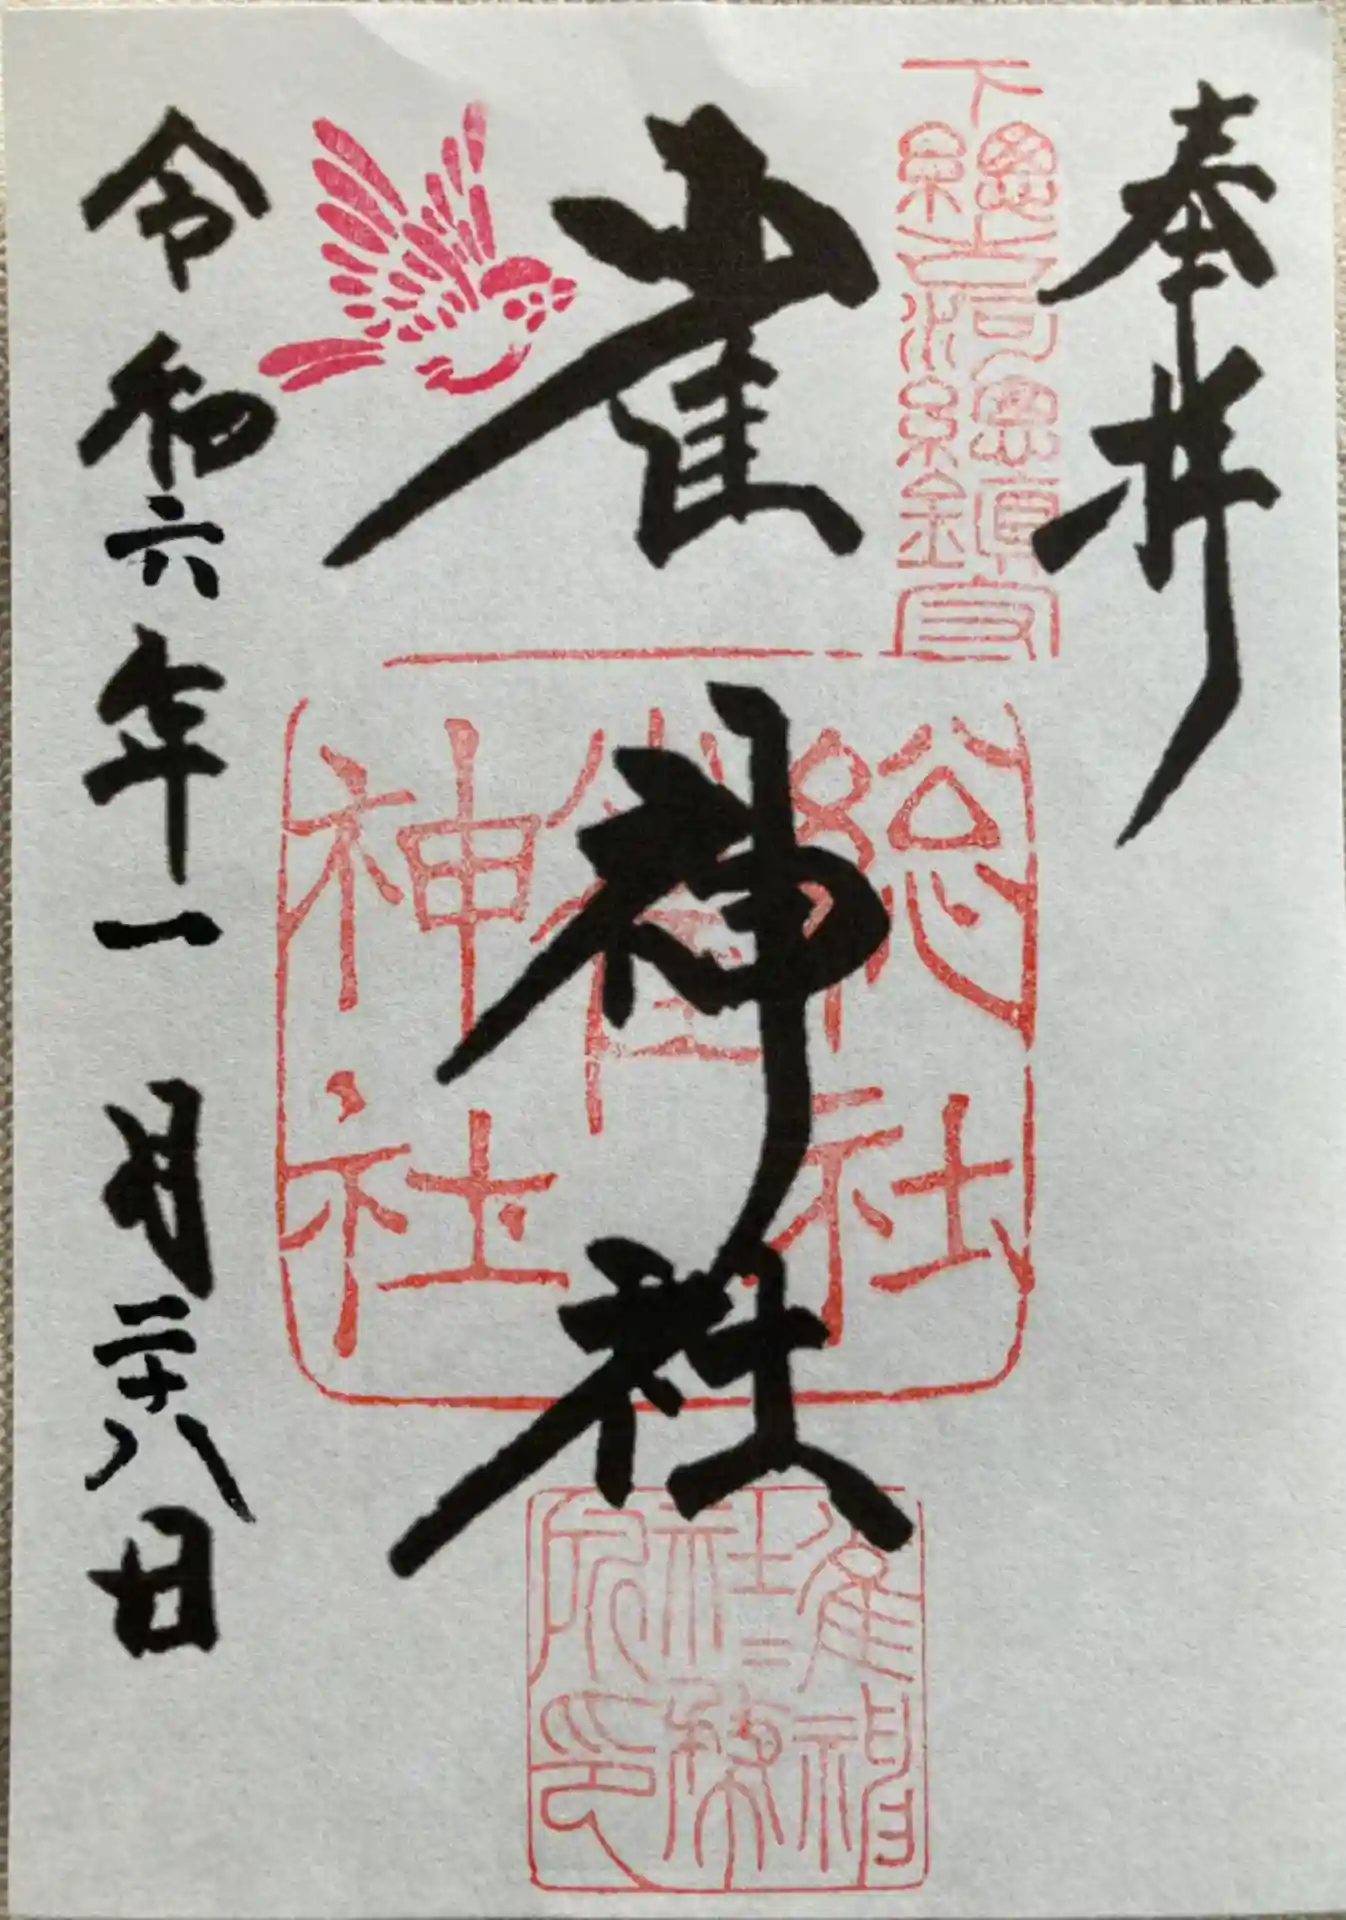 奉拝
下總古河總鎮守
雀神社
総社雀神社
雀神社〻務所印
令和六年一月二十八日